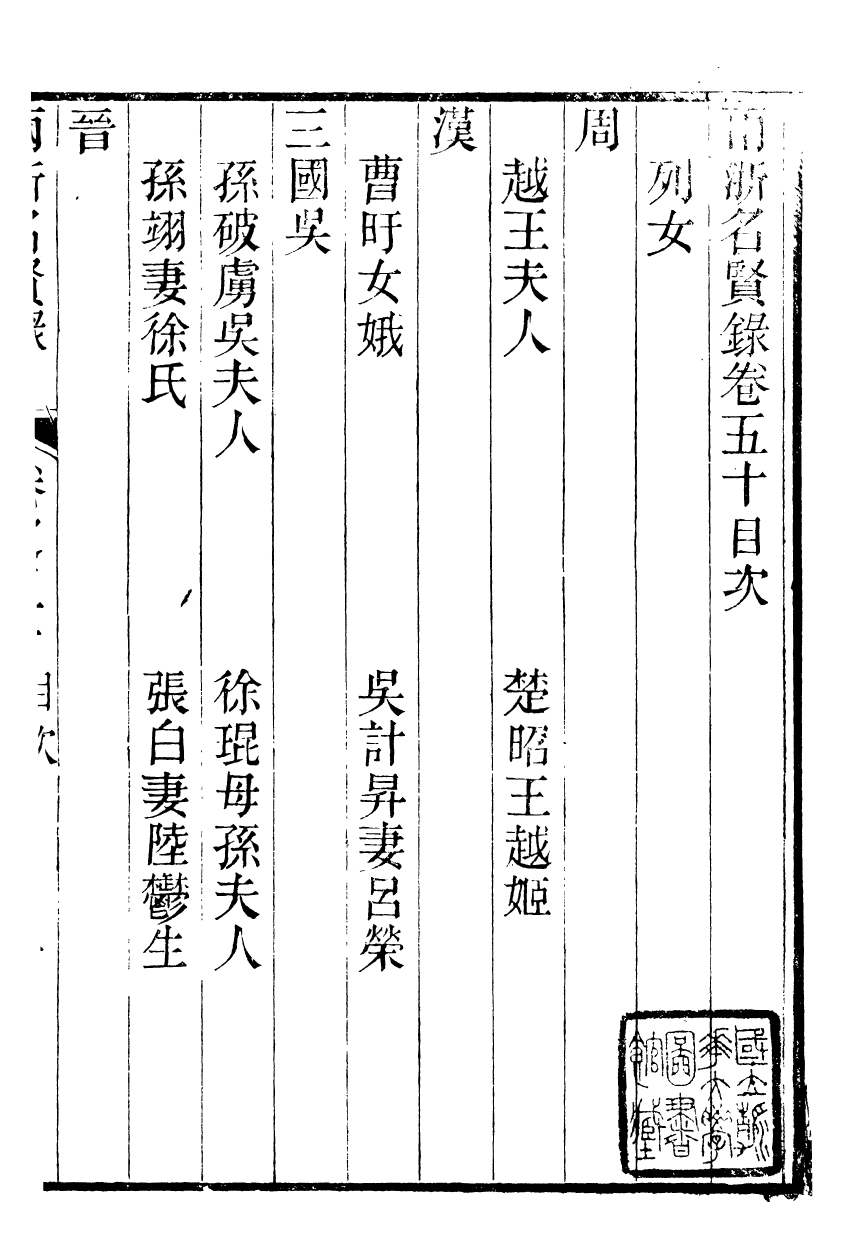 兩浙名賢錄卷五十目次
列女
周
越王夫人　楚昭王越姬
漢
曹盱女娥　吳計昇妻呂榮
三國吳
孫破虜吳夫人　徐琨母孫夫人
孫翊妻徐氏　張白妻陸鬱生
晉
兩浙名賢錄　目次
國立清華大學圖書館藏